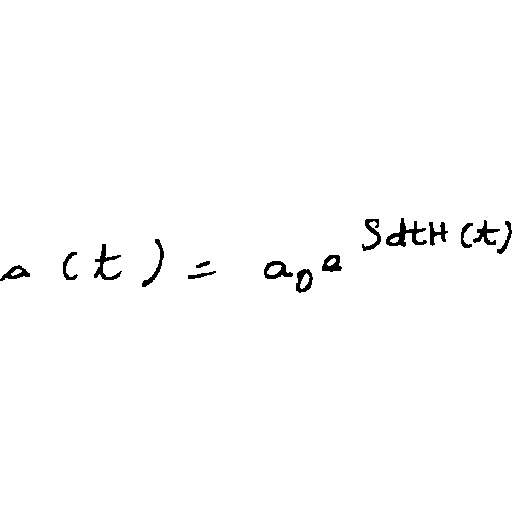 a(t) = a_0 e^{∫dtH(t)}